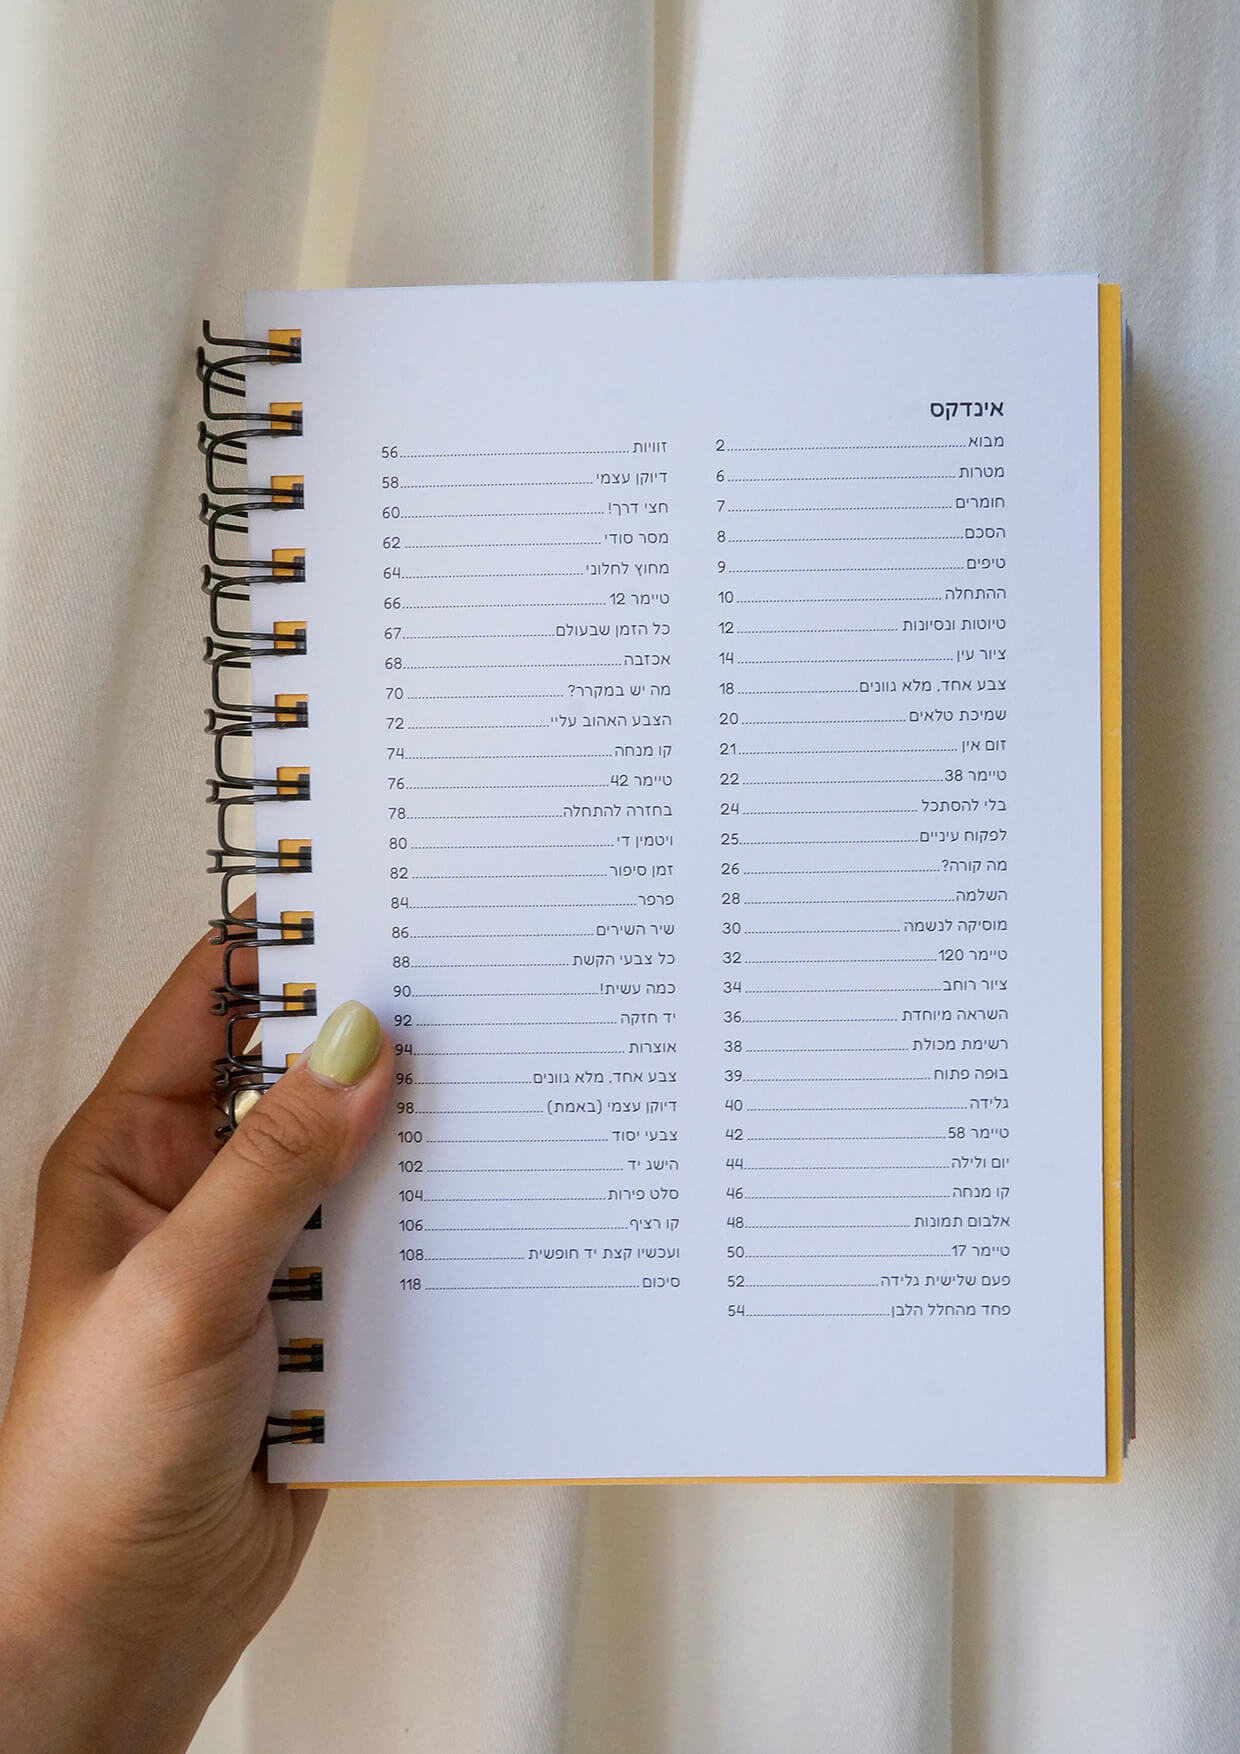 אינדקס
מבוא 2
מטרות 6
חומרים 7
הסכם 8
טיפים 9
ההתחלה 10
טיוטות ונסיונות 12
ציור עין 14
צבע אחד, מלא גוונים 18
שמיכת טלאים 20
זום אין 21
טיימר 38 22
בלי להסתכל 24
לפקוח עיניים 25
מה קורה? 26
השלמה 28
מוסיקה לנשמה 30
טיימר 120 32
ציור רוחב 34
השראה מיוחדת 36
רשימת מכולת 38
בופה פתוח 39
גלידה 40
טיימר 58 42
יום ולילה 44
קו מנחה 46
אלבום תמונות 48
טיימר 17 50
פעם שלישית גלידה 52
פחד מהחלל הלבן 54
זוויות 56
דיוקן עצמי 58
חצי דרך! 60
מסר סודי 62
מחוץ לחלוני 64
טיימר 12 66
כל הזמן שבעולם 67
אכזבה 68
מה יש במקרר? 70
הצבע האהוב עליי 72
קו מנחה 74
טיימר 42 76
בחזרה להתחלה 78
ויטמין די 80
זמן סיפור 82
פרפר 84
שיר השירים 86
כל צבעי הקשת 88
כמה עשית! 90
יד חזקה 92
אוצרות 94
צבע אחד, מלא גוונים 96
דיוקן עצמי (באמת) 98
צבעי יסוד 100
הישג יד 102
סלט פירות 104
קו רציף 106
ועכשיו קצת יד חופשית 108
סיכום 118